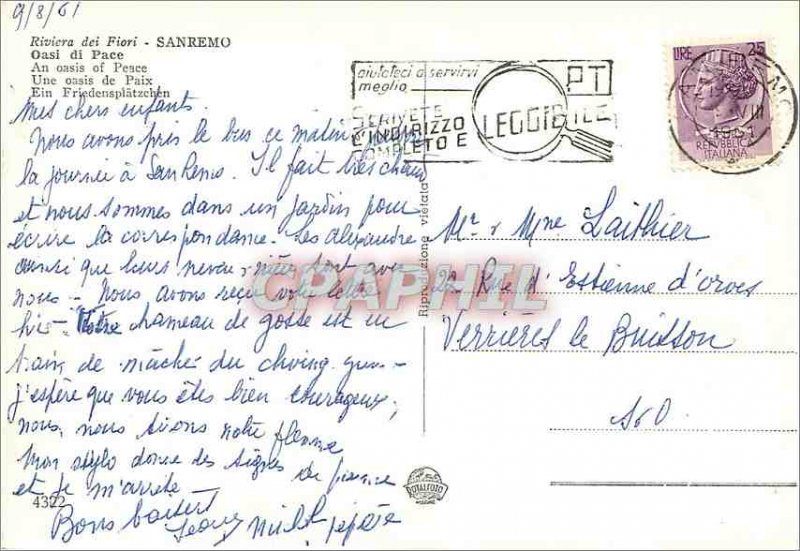 9/8/61
Riviera dei Fiori - SANREMO
Oasi di Pace
An oasis of Peace
Une oasis de Paix
Ein Friedensplätzchen
Mes chers enfants.
Nous avons pris le bus ce matin pour
la journée à San Remo. Il fait très chaud
et nous sommes dans un jardin pour
écrire la correspondance. Les Alexandre
aussi que leurs neveu nièce sont avec
nous - Nous avons reçu votre lettre
hier - Votre chameau de gosse est en
train de mâché du chwing gum -
j'espère que vous êtes bien courageux,
nous, nous tirons notre flemme
Mon stylo donne des signes de
et je m'arrête -
Bons baisers
4322
Riproduzione vietata
aiutateci a servirvi
meglio
SCRIVETE
L'INDIRIZZO
COMPLETO E
LEGGIBILE
PT
LIRE 25
REPUBBLICA
ITALIANA
VIII
1961
Mr & Mme Laithier
22 Rue d'Estienne d'orves
Verrières le Buisson
S & O
ROTALFOTO
CPAPHIL